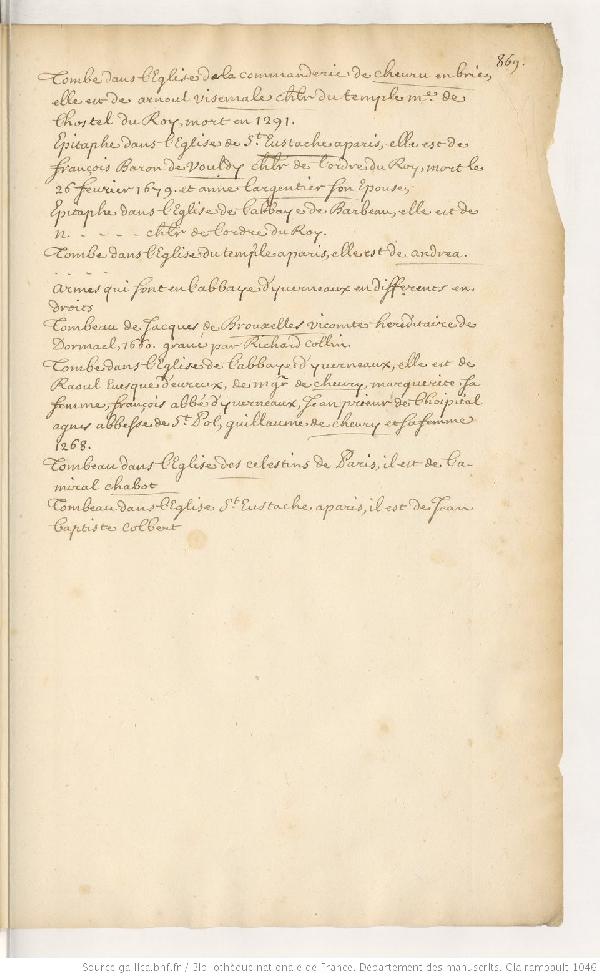 869.
Tombe dans l'Eglise de la commanderie de cheuru en brie,
elle est de arnoul visemale chlr du temple me. de
lhostel du Roy, mort en 1291.
Epitaphe dans l'Eglise de St. Eustache a paris, elle est de
françois Baron de Vouldy chlr de l'ordre du Roy, mort le
26 feurier 1679. et anne largentier son Epouse,
Epitaphe dans l'Eglise de l'abbaye de Barbeau, elle est de
n. - - - - - chlr de l'ordre du Roy.
Tombe dans l'Eglise du temple a paris, elle est de andrea.
- - - - -
armes qui sont en l'abbaye d'yuerneaux en differents en
droits
Tombeau de Jacques de Brouxelles vicomte hereditaire de
Dormael, 1660. graué par Richard Collin.
Tombe dans l'Eglise de l'abbaye d'yuerneaux, elle est de
Raoul Euesque d'eureux, de mgr de cheury, marguerite sa
femme, françois abbé d'yuerneaux, Jean prieur de l'hospital
agnes abbesse de St. Pol, guillaume de cheury et sa femme
1268.
Tombeau dans l'Eglise des celestins de Paris, il est de l'a-
miral chabot
Tombeau dans l'Eglise St. Eustache a paris, il est de Jean
baptiste colbert
Source gallica.bnf.fr / Bibliothèque nationale de France. Département des manuscrits. Clairembault 1046